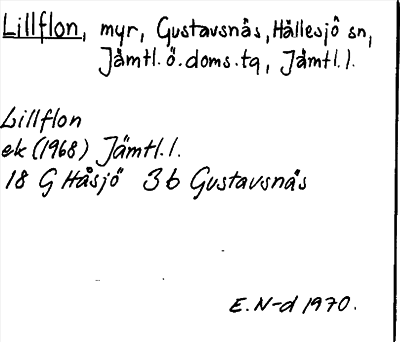 Lillflon, myr, Gustavsnäs, Hällesjö sn,
Jämtl. ö. doms. tg, Jämtl. l.
Lillflon
ek (1968) Jämtl. l.
18 G Håsjö 3b Gustavsnäs
E. N-d 1970.